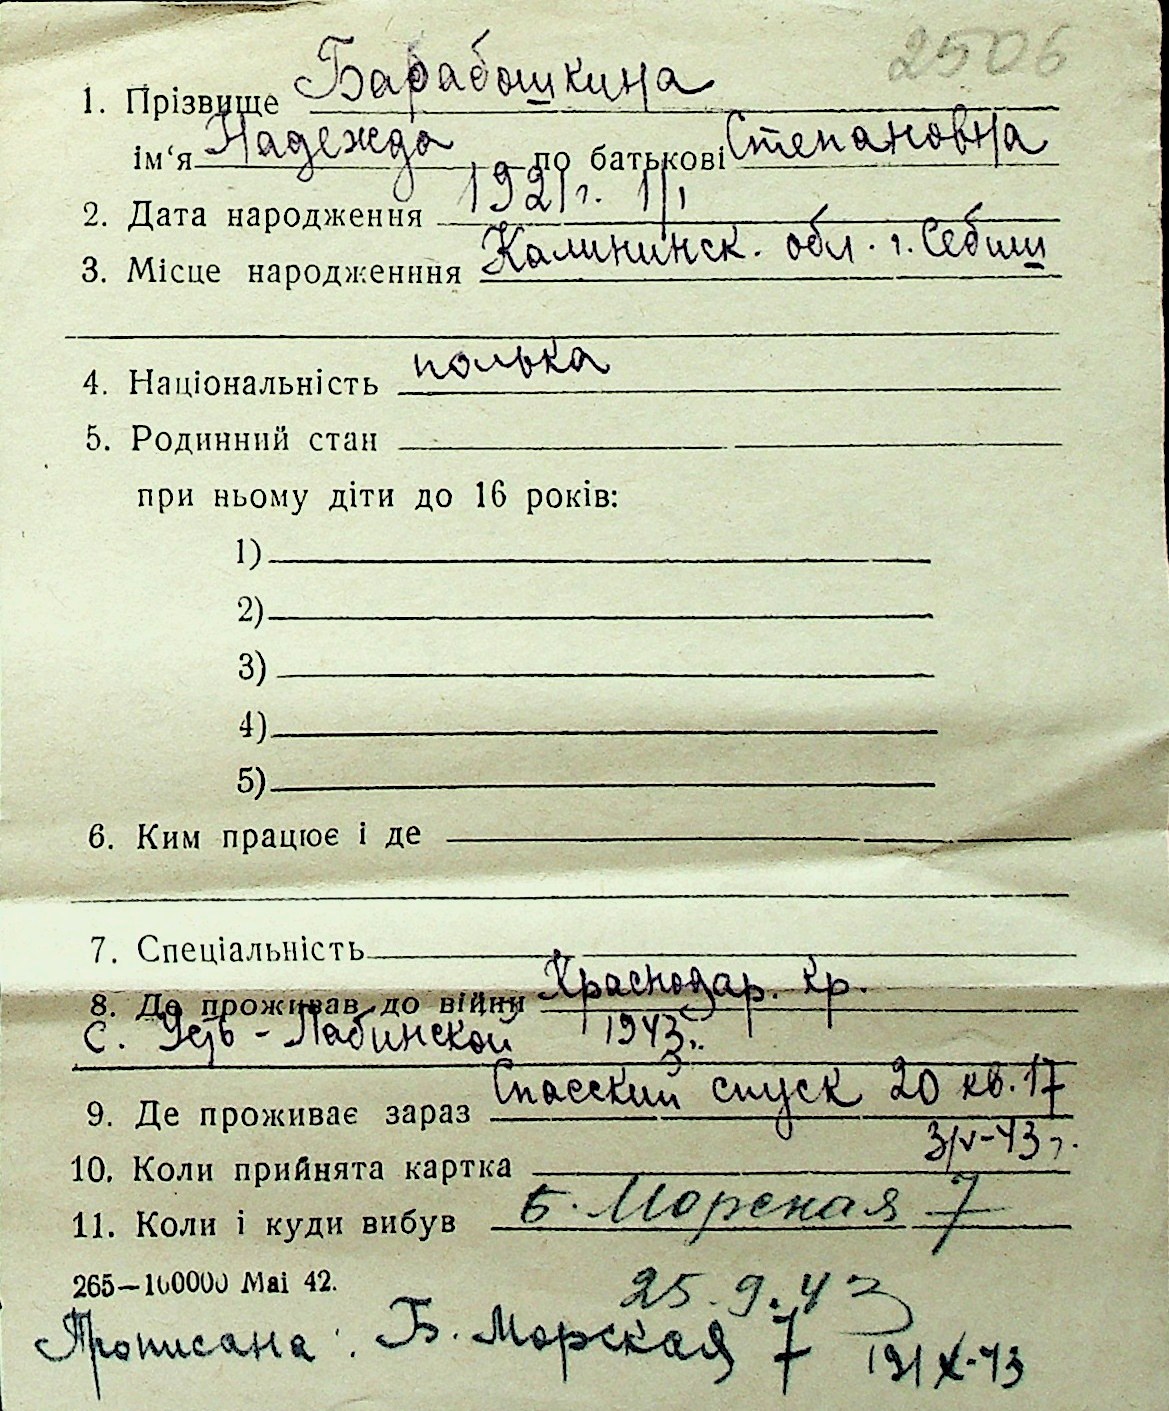 2506
1. Прізвище Барабошкина
ім'я Надежда по батькові Степановна
2. Дата народження 1921 г. 1/I
3. Місце народженння Калининск. обл. г. Себиш
4. Національність полька
5. Родинний стан
при ньому діти до 16 років:
1)
2)
3)
4)
5)
6. Ким працює і де
7. Спеціальність
8. Де проживав до війни Краснодар. кр.
С. Усть-Лабинской 1943г.
9. Де проживає зараз Спасский спуск 20 кв. 17
3/V-43 г.
10. Коли прийнята картка
11. Коли і куди вибув Б. Морская 7
265—100000 Mai 42.
25.9.43
Прописана: Б. Морская 7 19/X-43